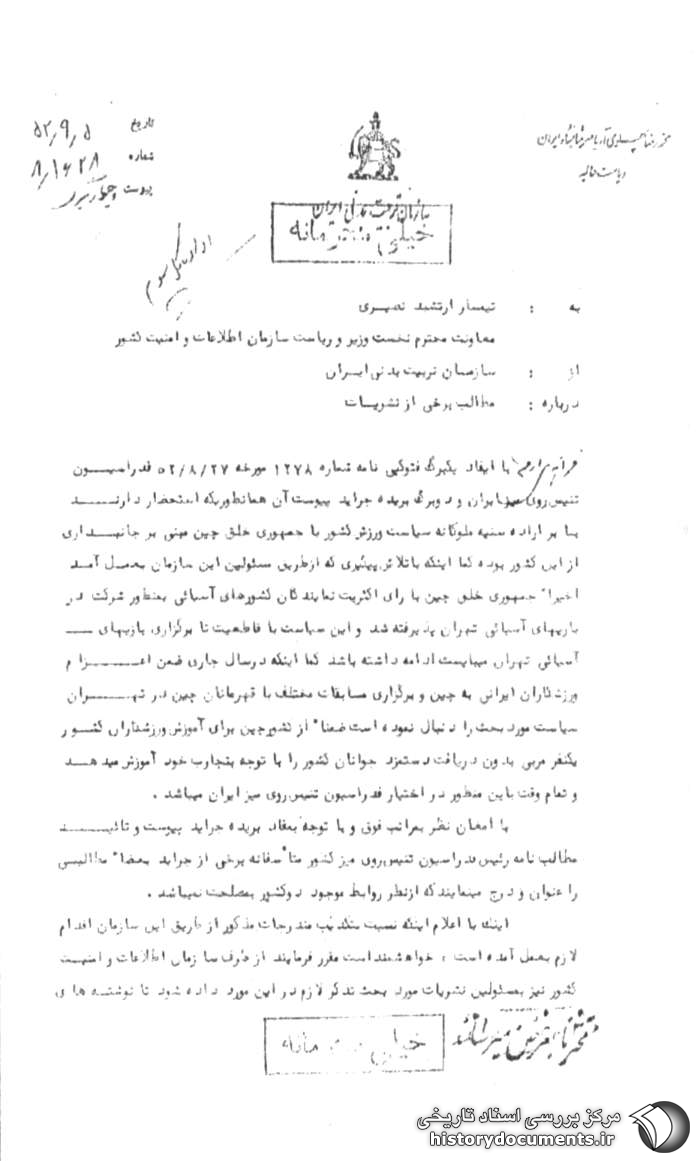 تاریخ ۵۲٫۹٫۵
شماره
پیوست
ریاست عالیه
سازمان تربیت بدنی ایران
خیلی محرمانه
اداره کل سوم
به : تیمسار ارتشبد نصیری
معاونت محترم نخست وزیر و ریاست سازمان اطلاعات و امنیت کشور
از : سازمان تربیت بدنی ایران
درباره : مطالب برخی از نشریات
با ایفاد یکبرگ فتوکپی نامه شماره ۱۲۷۸ مورخه ۵۲/۸/۲۷ فدراسیون
تنیس روی میز ایران و دوبرگ بریده جراید پیوست آن همانطوریکه استحضار دارند
بنا بر اراده سنیه ملوکانه سیاست ورزش کشور با جمهوری خلق چین مبنی بر جانبداری
از این کشور بوده کما اینکه با تلاش پیگیری که از طریق مسئولین این سازمان بعمل آمد
اخیرا" جمهوری خلق چین با رای اکثریت نمایندگان کشورهای آسیائی بمنظور شرکت در
بازیهای آسیائی تهران پذیرفته شد و این سیاست با قاطعیت تا برگزاری بازیهای
آسیائی تهران میبایست ادامه داشته باشد کما اینکه در سال جاری ضمن اعزام
ورزشکاران ایرانی به چین و برگزاری مسابقات مختلف با قهرمانان چین در تهران
سیاست مورد بحث را دنبال نموده است ضمنا" از کشور چین برای آموزش ورزشکاران کشور
یکنفر مربی بدون دریافت دستمزد جوانان کشور را با توجه بتجارب خود آموزش میدهد
و تمام وقت باین منظور در اختیار فدراسیون تنیس روی میز ایران میباشد .
با امعان نظر بمراتب فوق و با توجه بمفاد بریده جراید پیوست و تائید
مطالب نامه رئیس فدراسیون تنیس روی میز کشور متأسفانه برخی از جراید بعضا" مطالبی
را عنوان و درج مینمایند که از نظر روابط موجود دو کشور بمصلحت نمیباشد .
اینک با اعلام اینکه نسبت بتکذیب مندرجات مذکور از طریق این سازمان اقدام
لازم بعمل آمده است ، خواهشمند است مقرر فرمایند از طرف سازمان اطلاعات و امنیت
کشور نیز بمسئولین نشریات مورد بحث تذکر لازم در این مورد داده شود تا نوشته های
خیلی محرمانه
مرکز بررسی اسناد تاریخی
historydocuments.ir